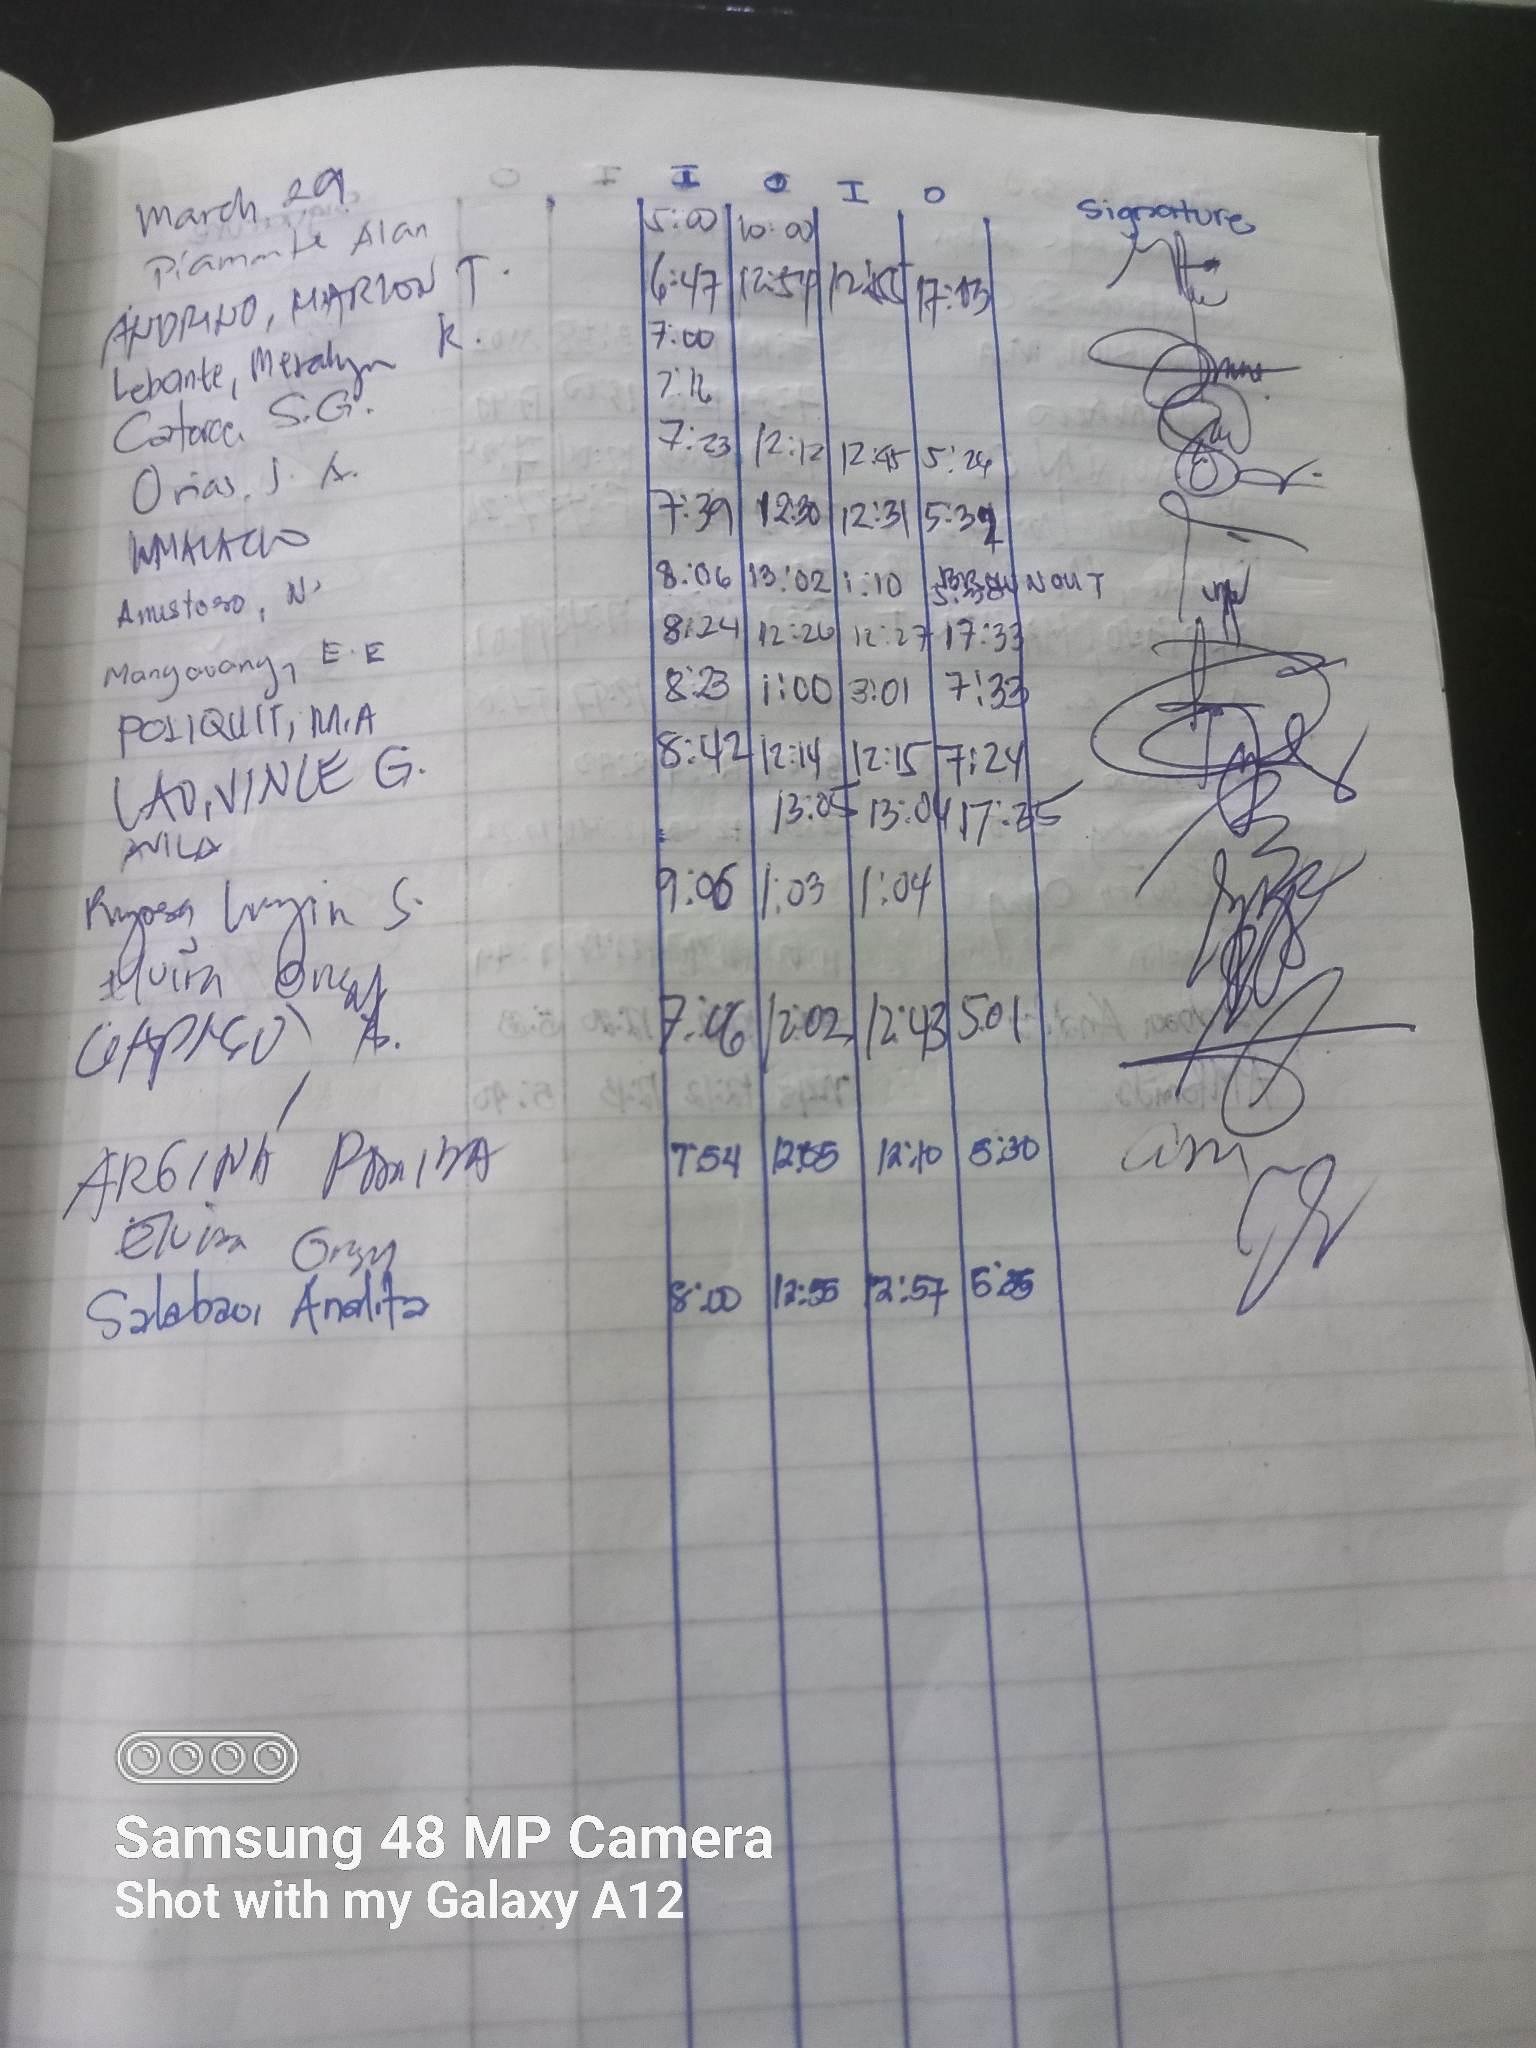 I O I O
March 29 Signature
Piamonte Alan 5:00 10:00
ANDRINO, MARLON T. 6:47 12:54 12:55 17:03
Lebante, Meralyn R. 7:00
Catorce, S.G. 7:16
Orias, J. A. 7:23 12:12 12:45 5:26
WMALACLO 7:39 12:30 12:31 5:32
Amistoso, N. 8:06 13:02 1:10 BROWNOUT
Mangaoang, E.E 8:24 12:26 12:27 17:33
POLIQUIT, M.A 8:23 1:00 3:01 7:33
LAO, VINCE G. 8:42 12:14 12:15 7:24
AVILA 13:05 13:04 17:35
S. 9:06 1:03 1:04
Elvira
A. 7:46 12:02 12:43 5:01
ARGINA 7:54 12:05 12:10 5:30
Elvira
Salabao, Analita 8:00 12:55 12:57 5:35
Samsung 48 MP Camera
Shot with my Galaxy A12